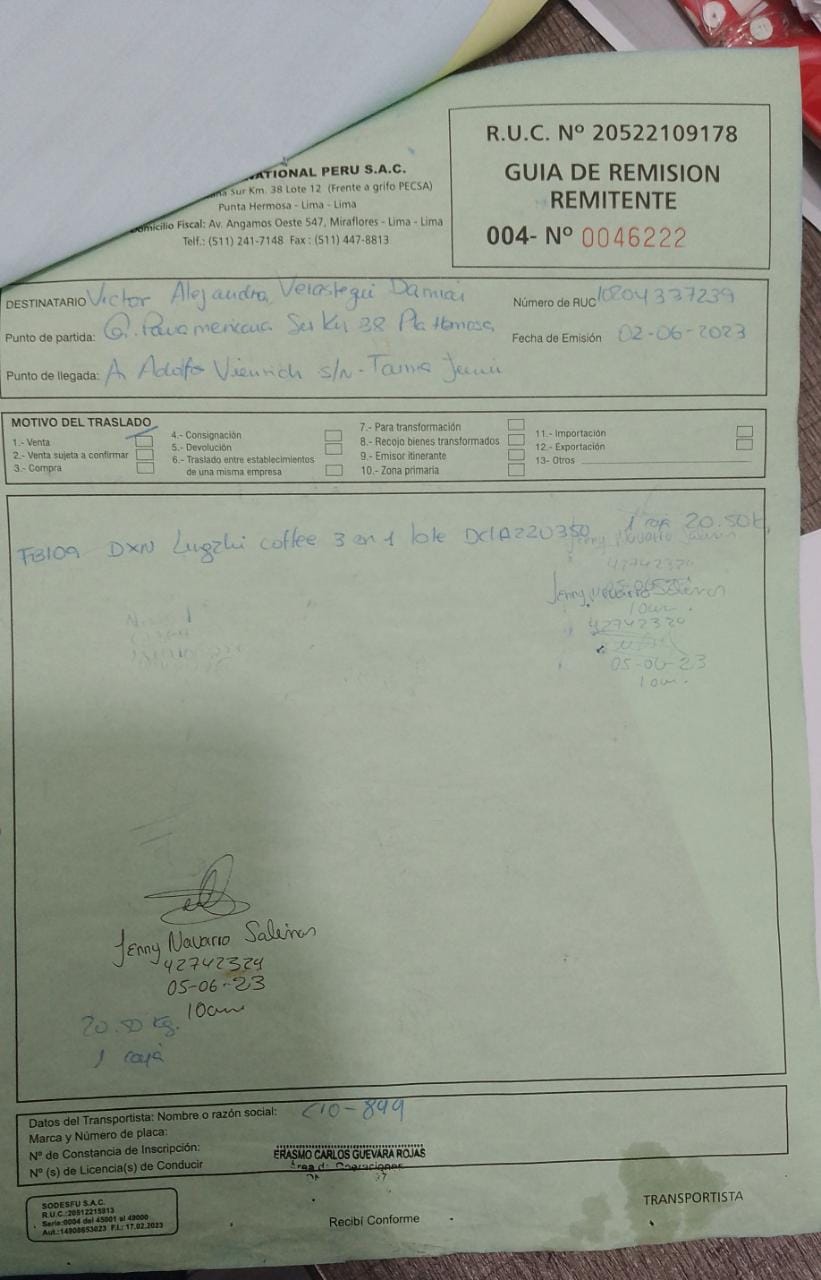 NATIONAL PERU S.A.C.
Sur Km. 38 Lote 12 (Frente a grifo PECSA)
Punta Hermosa - Lima - Lima
Domicilio Fiscal: Av. Angamos Oeste 547, Miraflores - Lima - Lima
Telf.: (511) 241-7148 Fax : (511) 447-8813
R.U.C. Nº 20522109178
GUIA DE REMISION
REMITENTE
004- Nº 0046222
DESTINATARIO Victor Alejandro Verastegui Damian
Número de RUC 10204337239
Punto de partida: Panamericana Sur Km 38 Pta Hermosa
Fecha de Emisión 02-06-2023
Punto de llegada: Adolfo Vienrich s/n - Tarma Junin
MOTIVO DEL TRASLADO
1.- Venta
2.- Venta sujeta a confirmar
3.- Compra
4.- Consignación
5.- Devolución
6.- Traslado entre establecimientos
de una misma empresa
7.- Para transformación
8.- Recojo bienes transformados
9.- Emisor itinerante
10.- Zona primaria
11.- Importación
12.- Exportación
13- Otros
FB109 DXN Lingzhi coffee 3 en 1 lote DCIA220350 1 caja 20.50K
Jenny Navarro Salinas
42742324
Jenny Navarro Salinas
10am.
42742324
05-06-23
10am.
Jenny Navarro Salinas
42742324
05-06-23
10am
20.50 kg.
1 caja
Datos del Transportista: Nombre o razón social: C10-899
Marca y Número de placa:
Nº de Constancia de Inscripción:
Nº (s) de Licencia(s) de Conducir
ERASMO CARLOS GUEVARA ROJAS
Area de Operaciones
SODESFU S.A.C.
R.U.C.:20512215813
Serie:0004 del 45001 al 49000
Aut.:14908653023 F.I.: 17.02.2023
Recibí Conforme
TRANSPORTISTA